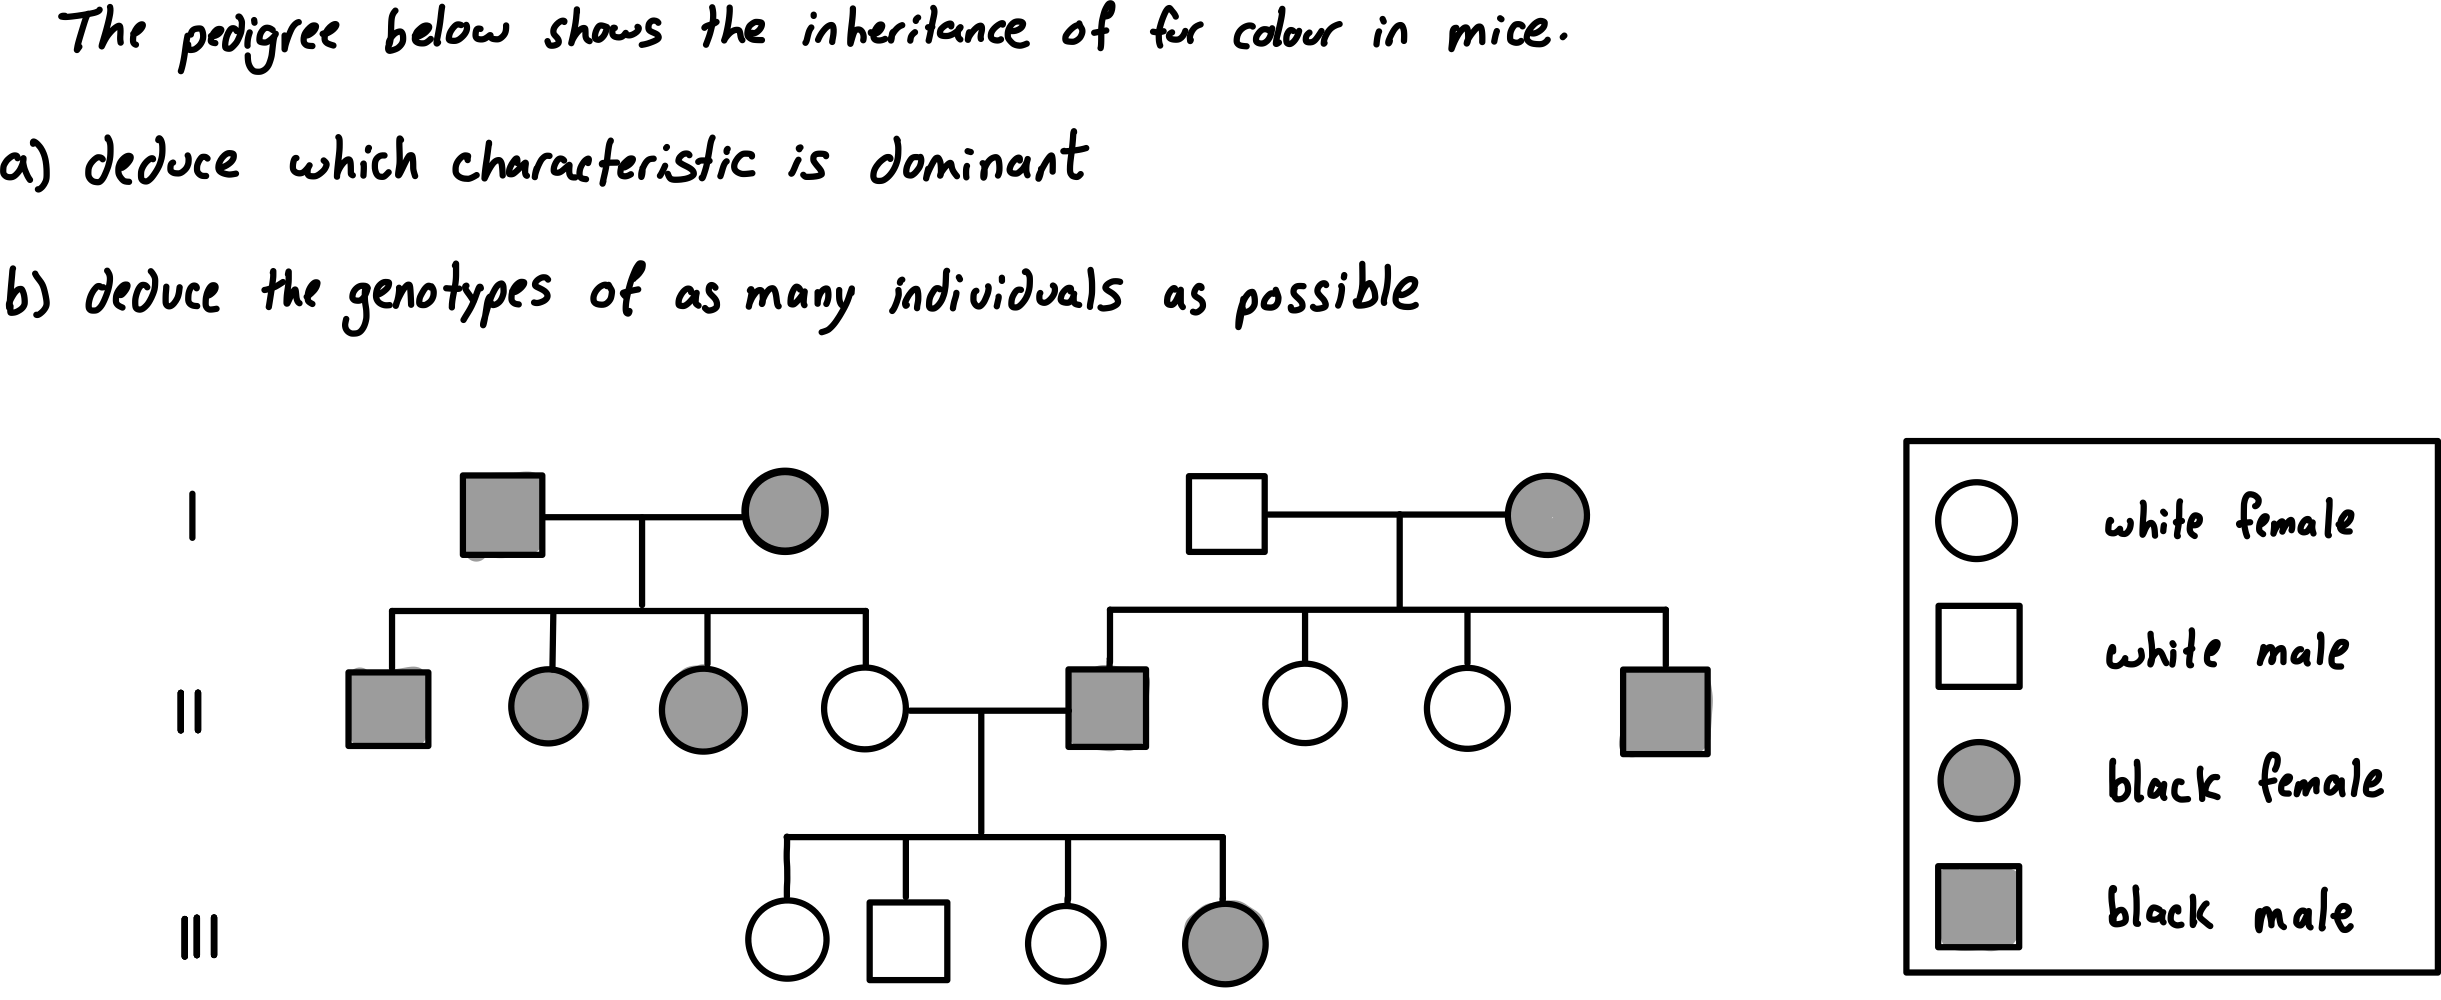 The pedigree below shows the inheritance of fur colour in mice.
a) deduce which characteristic is dominant
b) deduce the genotypes of as many individuals as possible
I
II
III
white female
white male
black female
black male